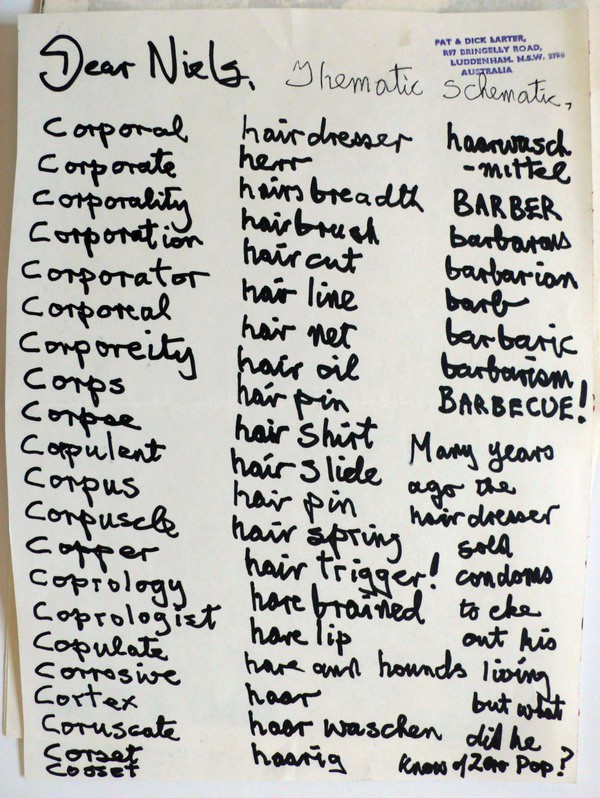 Dear Niels,
Thematic Schematic,
PAT & DICK LARTER,
RØ7 BRINGELLY ROAD,
LUDDENHAM. N.S.W. 2750
AUSTRALIA
Corporal
Corporate
Corporality
Corporation
Corporator
Corporeal
Corporeity
Corps
Corpse
Corpulent
Corpus
Corpuscle
Copper
Coprology
Coprologist
Copulate
Corrosive
Cortex
Coruscate
Corset
Cosset
hairdresser
herr
hairsbreadth
hairbrush
haircut
hair line
hair net
hair oil
hair pin
hair shirt
hair slide
hair pin
hair spring
hair trigger!
harebrained
hare lip
hare and hounds
haar
haar waschen
haarig
haarwasch
-mittel
BARBER
barbarous
barbarian
barb
barbaric
barbarism
BARBECUE!
Many years
ago the
hairdresser
sold
condoms
to eke
out his
living
but what
did he
know of Zero Pop?